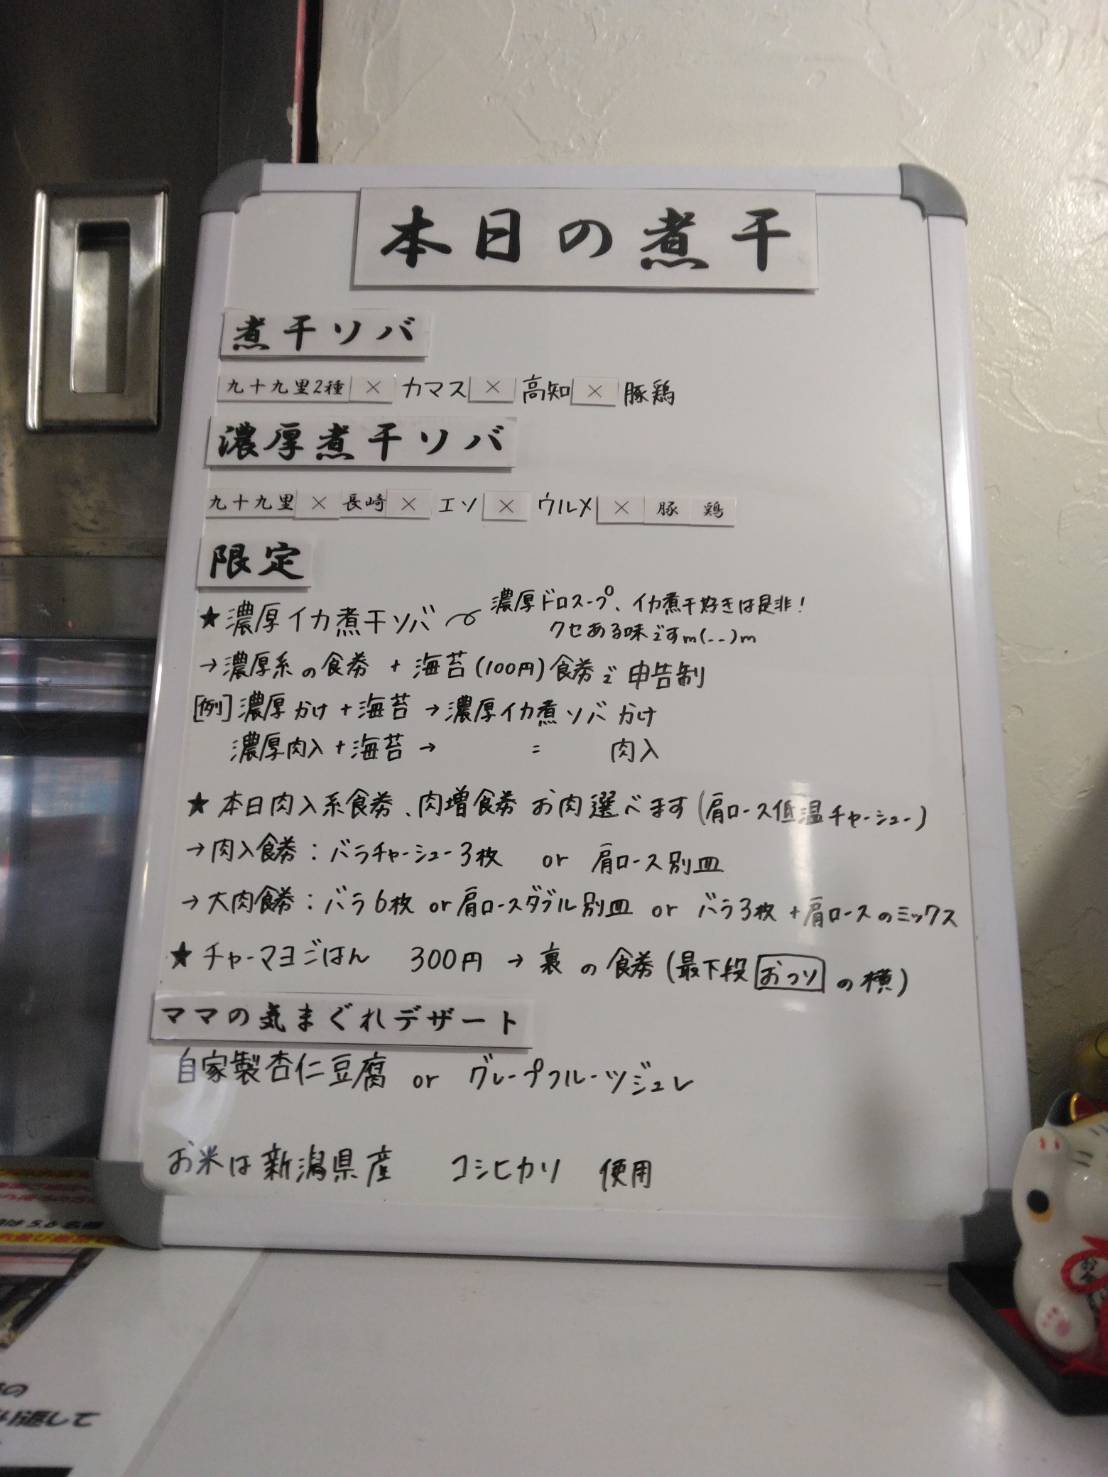 本日の煮干
煮干ソバ
九十九里2種 × カマス × 高知 × 豚鶏
濃厚煮干ソバ
九十九里 × 長崎 × エソ × ウルメ × 豚鶏
限定
★濃厚イカ煮干ソバ 濃厚ドロスープ、イカ煮干好きは是非!
クセある味ですm(..)m
→濃厚系の食券 + 海苔(100円)食券で申告制
[例]濃厚かけ+海苔→濃厚イカ煮ソバかけ
濃厚肉入+海苔→ 〃 肉入
★本日肉入系食券、肉増食券お肉選べます(肩ロース低温チャーシュー)
→肉入食券:バラチャーシュー3枚 or 肩ロース別皿
→大肉食券:バラ6枚 or 肩ロースダブル別皿 or バラ3枚+肩ロースのミックス
★チャーマヨごはん 300円→裏の食券(最下段おつりの横)
ママの気まぐれデザート
自家製杏仁豆腐 or グレープフルーツジュレ
お米は新潟県産 コシヒカリ 使用
は5.6名様
り返して